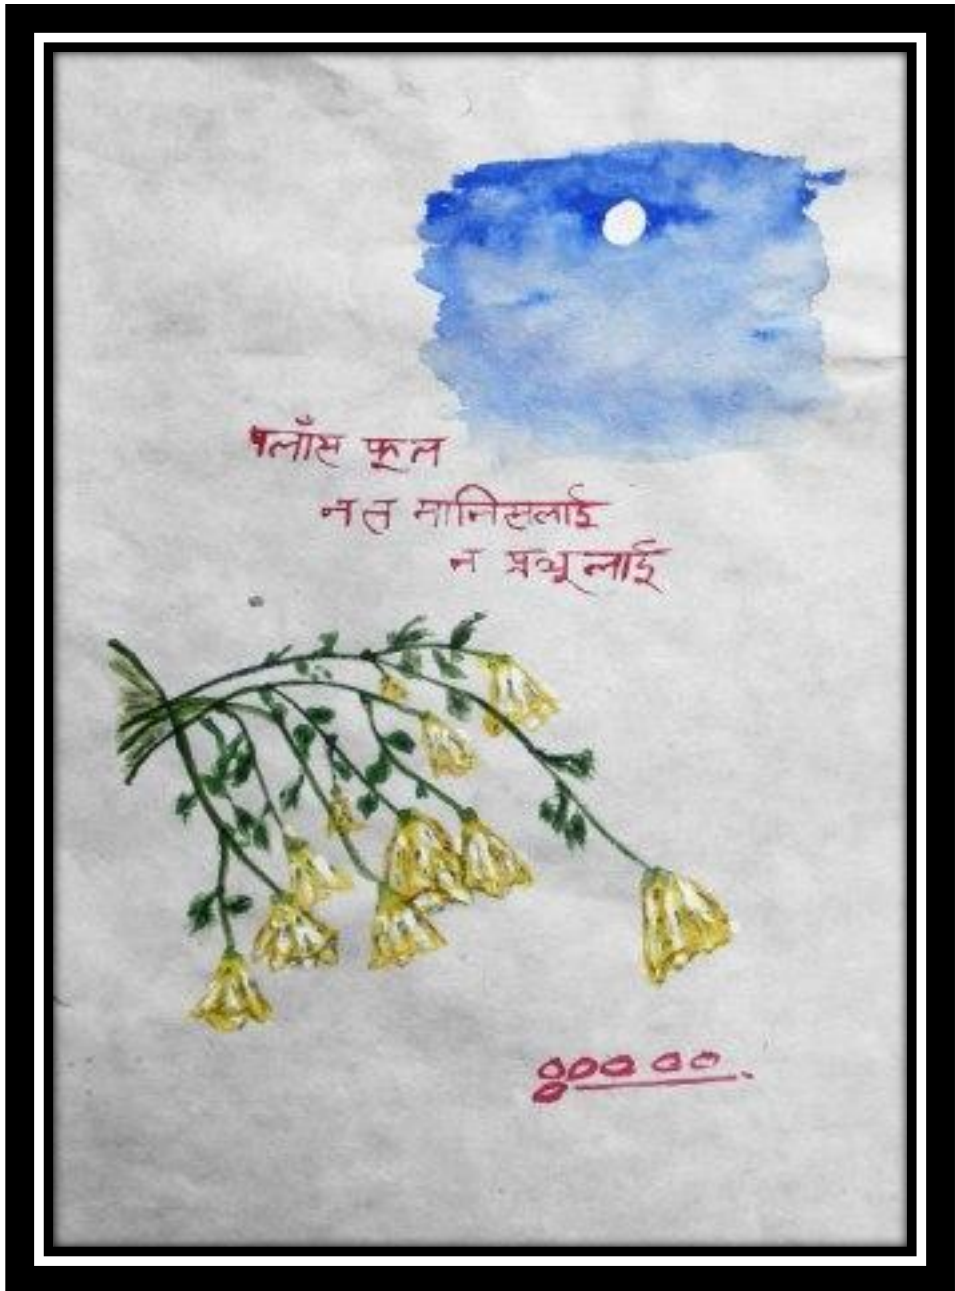 पलाँस फूल
न त मानिसलाई
न प्रभूलाई